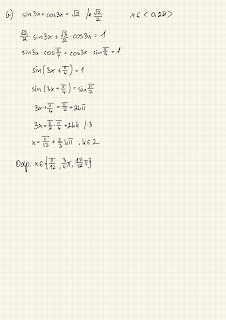 b) sin3x + cos3x = √2 /· √2/2 x ∈ <0,2π>
√2/2 · sin3x + √2/2 · cos3x = 1
sin3x · cos π/4 + cos3x · sin π/4 = 1
sin(3x + π/4) = 1
sin(3x + π/4) = sin π/2
3x + π/4 = π/2 + 2kπ
3x = π/2 - π/4 + 2kπ /:3
x = π/12 + 2/3 kπ , k ∈ Z
Odp. x ∈ {π/12, 3/4 π, 17/12 π}